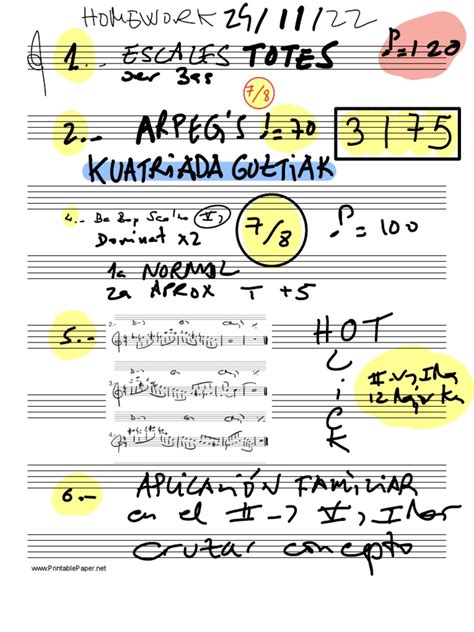 HOMEWORK 29/11/22
1.- ESCALES TOTES ♪=120
per 3as
7/8
2.- ARPEG'S ♩=70 3175
KUATRIADA GUZTIAK
4.- Be Bop
Dominat x2 7/8 ♩=100
1a NORMAL
2a APROX T +5
5.- HOT LICK
6.- APLICACIÓN FAMILIAR
en el II-7 V7
cruzar concepto
www.PrintablePaper.net